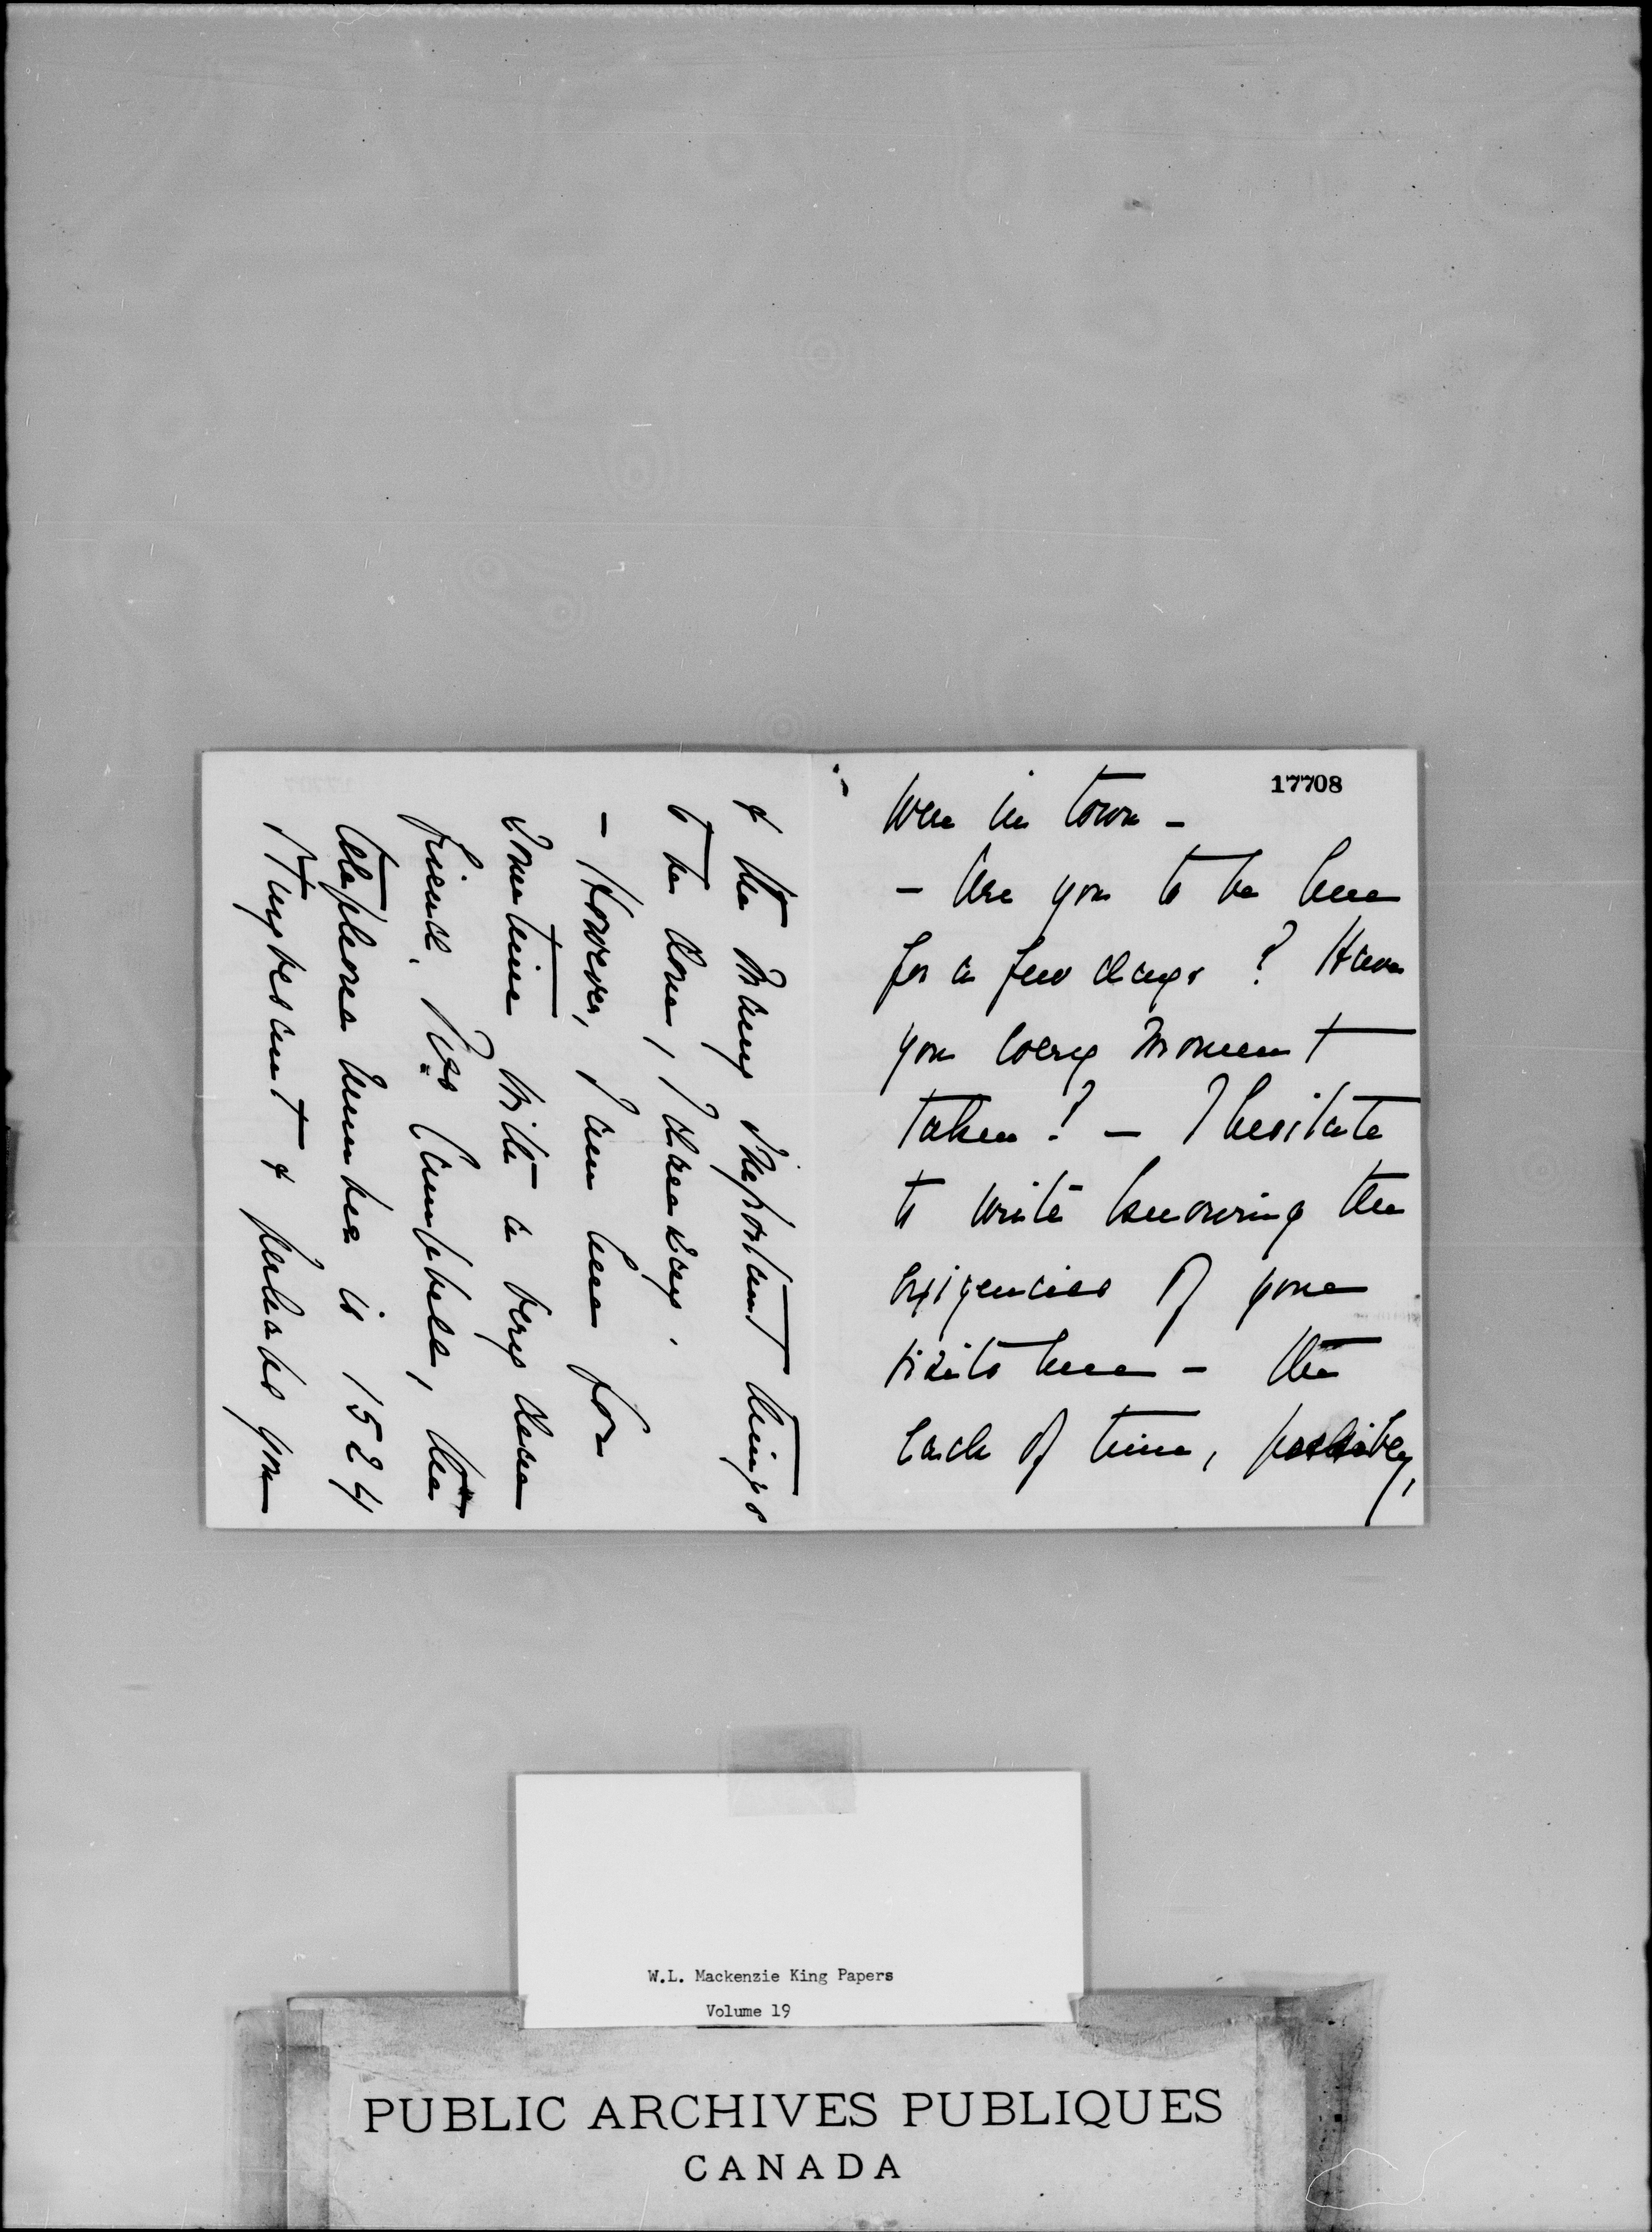 17708
were in town -
- Are you to be here
for a few days? Have
you every moment
taken? - I hesitate
to write knowing the
exigencies of your
visits here - the
lack of time, possibly,
& the many important things
to be done, I dare say.
- However, I am here for
sometime with a very dear
friend, Campbell, the
telephone number is 1524
& perhaps you
W.L. Mackenzie King Papers
Volume 19
PUBLIC ARCHIVES PUBLIQUES
CANADA